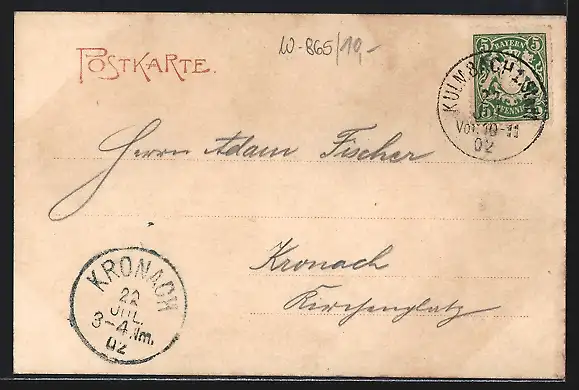 W-865/10,-
POSTKARTE.
5 BAYERN 5
PFENNIG
KULMBACH 1
Vor. 10-11
02
Herrn Adam Fischer
Kronach
Kirchenplatz
KRONACH
22
JUL.
3-4 Nm.
02